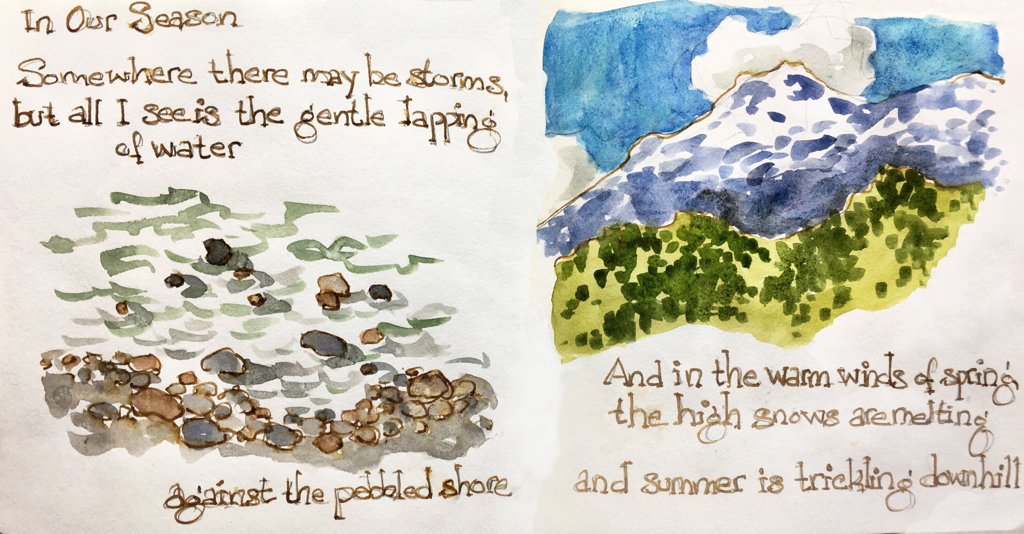 In Our Season
Somewhere there may be storms,
but all I see is the gentle lapping
of water
against the pebbled shore
And in the warm winds of spring
the high snows are melting
and summer is trickling downhill